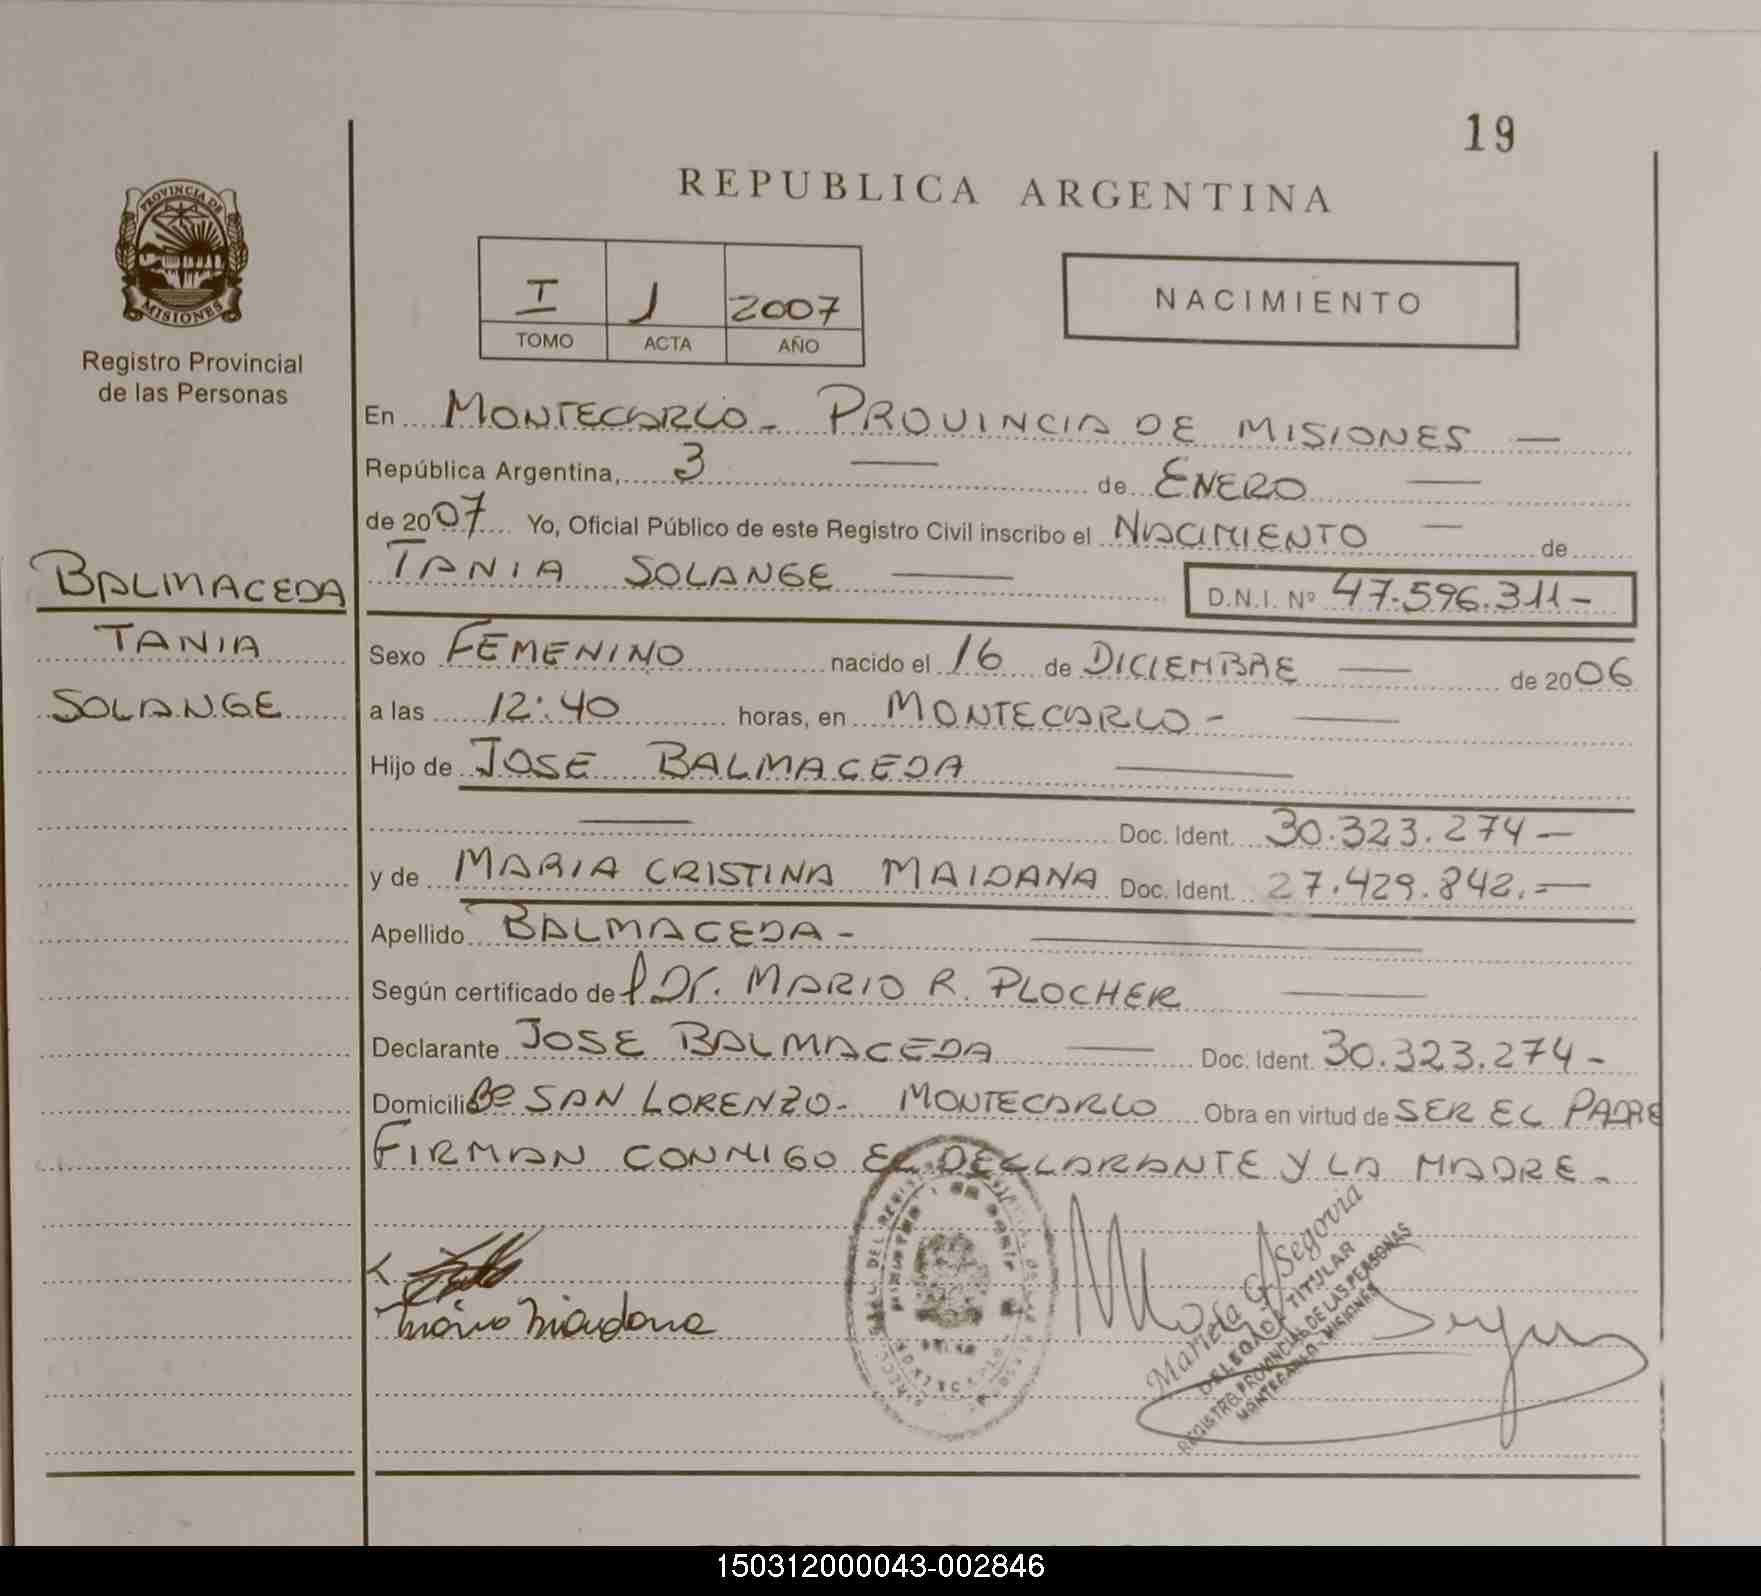 19
REPUBLICA ARGENTINA
PROVINCIA DE
MISIONES
Registro Provincial
de las Personas
I J 2007
TOMO ACTA AÑO
NACIMIENTO
En MONTECARLO - PROVINCIA DE MISIONES —
República Argentina, 3 — de ENERO —
de 2007 Yo, Oficial Público de este Registro Civil inscribo el NACIMIENTO — de
TANIA SOLANGE — D.N.I. Nº 47.596.311-
BALMACEDA
TANIA
SOLANGE
Sexo FEMENINO nacido el 16 de DICIEMBRE — de 2006
a las 12:40 horas, en MONTECARLO - —
Hijo de JOSE BALMACEDA —
— Doc. Ident. 30.323.274 —
y de MARIA CRISTINA MAIDANA Doc. Ident. 27.429.842.—
Apellido BALMACEDA - —
Según certificado del Dr. MARIO R. PLOCHER —
Declarante JOSE BALMACEDA — Doc. Ident. 30.323.274 -
Domicilio Bº SAN LORENZO - MONTECARLO Obra en virtud de SER EL PADRE
FIRMAN CONMIGO EL DECLARANTE Y LA MADRE -
Mariela G. Segovia
DELEGADA TITULAR
REGISTRO PROVINCIAL DE LAS PERSONAS
MONTECARLO - MISIONES
150312000043-002846